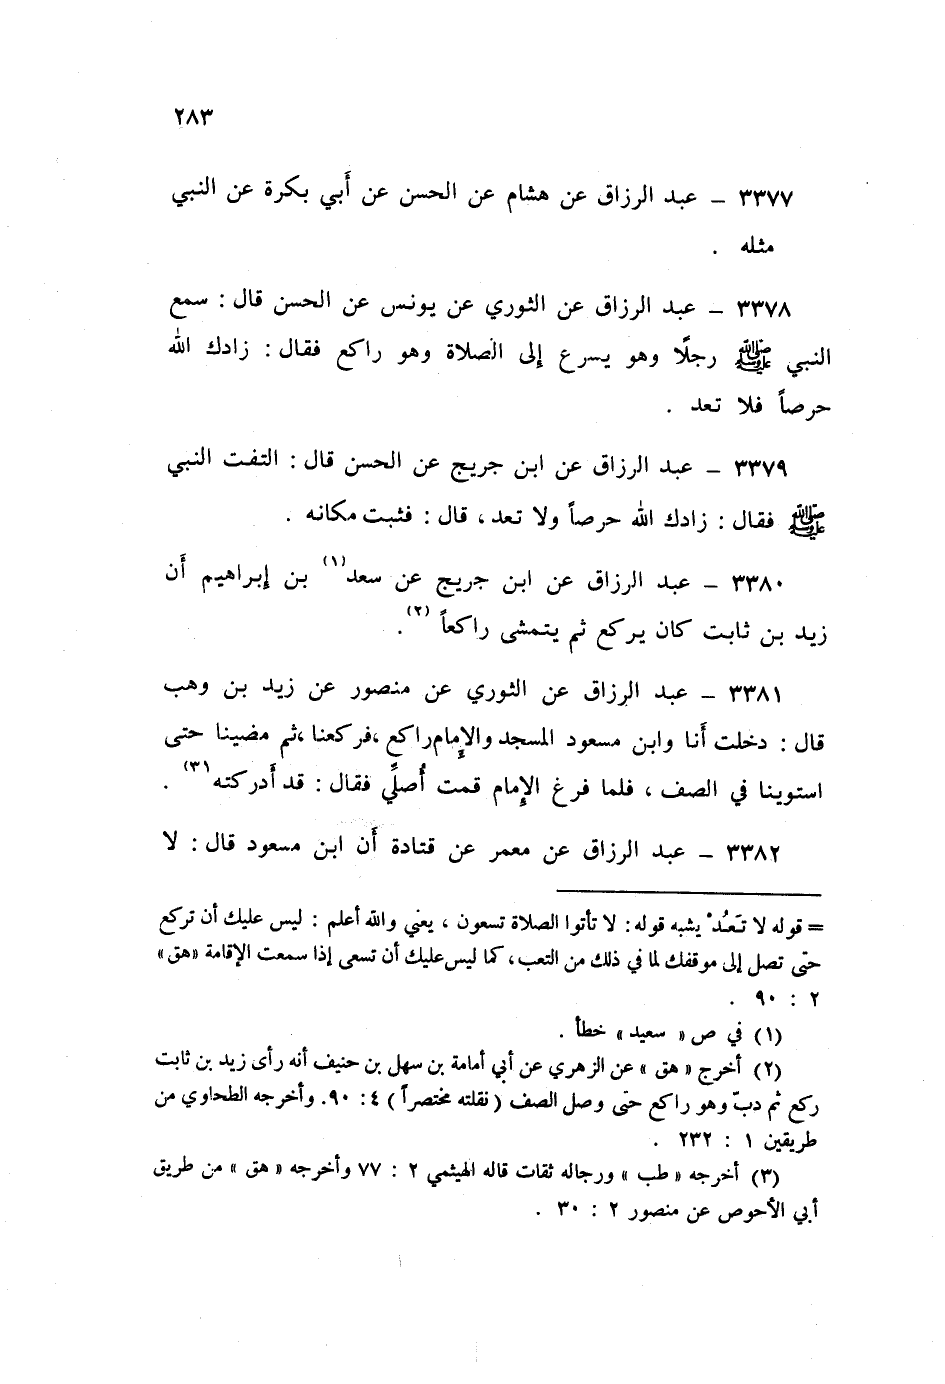 ٢٨٣
٣٣٧٧ – عبد الرزاق عن هشام عن الحسن عن أَبي بكرة عن النبي
مثله .
٣٣٧٨ – عبد الرزاق عن الثوري عن يونس عن الحسن قال : سمع
النبي ﷺ رجلًا وهو يسرع إلى الصلاة وهو راكع فقال : زادك الله
حرصاً فلا تعد .
٣٣٧٩ – عبد الرزاق عن ابن جريج عن الحسن قال : التفت النبي
ﷺ فقال : زادك الله حرصاً ولا تعد ، قال : فثبت مكانه .
٣٣٨٠ – عبد الرزاق عن ابن جريج عن سعد(١) بن إبراهيم أَن
زيد بن ثابت كان يركع ثم يتمشى راكعاً (٢) .
٣٣٨١ – عبد الرزاق عن الثوري عن منصور عن زيد بن وهب
قال : دخلت أَنا وابن مسعود المسجد والإمام راكع ، فركعنا ، ثم مضينا حتى
استوينا في الصف ، فلما فرغ الإمام قمت أُصلِّي فقال : قد أَدركته(٣) .
٣٣٨٢ – عبد الرزاق عن معمر عن قتادة أَن ابن مسعود قال : لا
= قوله لا تَعُدْ يشبه قوله : لا تأتوا الصلاة تسعون ، يعني والله أعلم : ليس عليك أن تركع
حتّى تصل إلى موقفك لما في ذلك من التعب ، كما ليس عليك أن تسعى إذا سمعت الإقامة «هق»
٢ : ٩٠ .
(١) في ص « سعيد » خطأ .
(٢) أخرج « هق » عن الزهري عن أبي أمامة بن سهل بن حنيف أنه رأى زيد بن ثابت
ركع ثم دبّ وهو راكع حتى وصل الصف ( نقلته مختصراً ) ٤ : ٩٠. وأخرجه الطحاوي من
طريقين ١ : ٢٣٢ .
(٣) أخرجه « طب » ورجاله ثقات قاله الهيثمي ٢ : ٧٧ وأخرجه « هق » من طريق
أبي الأحوص عن منصور ٢ : ٣٠ .